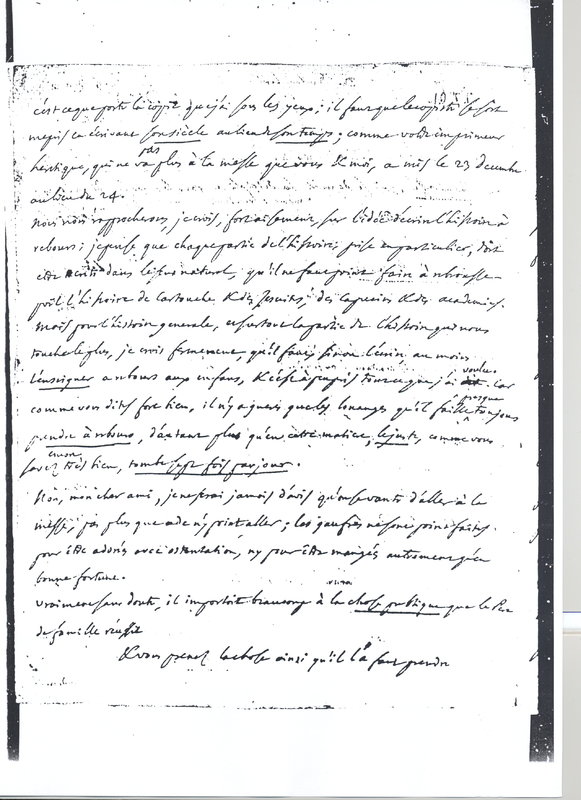 c'est ce que porte la copie que j'ai sous les yeux; il faut que le copiste se soit
mepris en ecrivant son siècle au lieu de son temps; comme votre imprimeur
heretique, qui ne va pas plus à la messe que vous & moi, a mis le 23 decembre
au lieu du 24.
nous nous rapprocherons, je crois, fort aisement, sur l'idée d'ecrire l'histoire à
rebours; je pense que chaque partie de l'histoire, prise en particulier, doit
etre ecrite dans le sens naturel, qu'il ne faut point faire à rebrousse-
poil l'histoire de Cartouche & des Jesuites, des capucins & des academies.
mais pour l'histoire generale, et surtout la partie de l'histoire qui nous
touche le plus, je crois fermement, qu'il faut, sinon l'ecrire au moins
l'enseigner a rebours aux enfans, & c'est à peu près tout ce que j'ai voulu. car
comme vous dites fort bien, il n'y a gueres que les louanges qu'il faille presque toujours
prendre à rebours, d'autant plus qu'en cette matiere, le juste, comme vous
savez encor très bien, tombe sept fois par jour.
Non, mon cher ami, je ne serai jamais d'avis qu'on se vante d'aller à la
messe, pas plus que de n'y point aller; les gaufres ne sont point faites
pour être adorées avec ostentation, ny pour être mangées autrement qu'en
bonne fortune.
vraiment sans doute, il importoit beaucoup à la chose publique que le Pere
de famille réussit
& vous prenez la chose ainsi qu'il la faut prendre